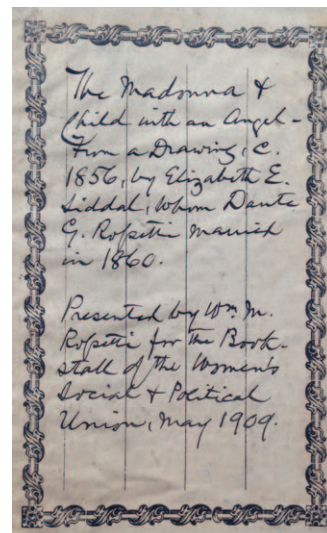 The Madonna &
Child with an Angel -
From a Drawing, c.
1856, by Elizabeth E.
Siddal, whom Dante
G. Rossetti married
in 1860.
Presented by Wm. M.
Rossetti for the Book-
stall of the Women's
Social & Political
Union, May 1909.